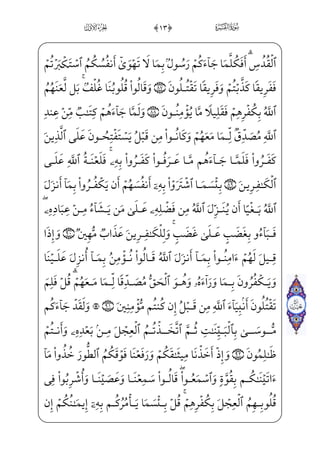 الجزء الأول ﴿١٣﴾ سورة البقرة
ٱلۡقُدُسِۗ أَفَكُلَّمَا جَآءَكُمۡ رَسُولُۢ بِمَا لَا تَهۡوَىٰٓ أَنفُسُكُمُ ٱسۡتَكۡبَرۡتُمۡ
فَفَرِيقٗا كَذَّبۡتُمۡ وَفَرِيقٗا تَقۡتُلُونَ ٨٧ وَقَالُواْ قُلُوبُنَا غُلۡفُۢۚ بَل لَّعَنَهُمُ
ٱللَّهُ بِكُفۡرِهِمۡ فَقَلِيلٗا مَّا يُؤۡمِنُونَ ٨٨ وَلَمَّا جَآءَهُمۡ كِتَٰبٞ مِّنۡ عِندِ
ٱللَّهِ مُصَدِّقٞ لِّمَا مَعَهُمۡ وَكَانُواْ مِن قَبۡلُ يَسۡتَفۡتِحُونَ عَلَى ٱلَّذِينَ
كَفَرُواْ فَلَمَّا جَآءَهُم مَّا عَرَفُواْ كَفَرُواْ بِهِۦۚ فَلَعۡنَةُ ٱللَّهِ عَلَى
ٱلۡكَٰفِرِينَ ٨٩ بِئۡسَمَا ٱشۡتَرَوۡاْ بِهِۦٓ أَنفُسَهُمۡ أَن يَكۡفُرُواْ بِمَآ أَنزَلَ
ٱللَّهُ بَغۡيًا أَن يُنَزِّلَ ٱللَّهُ مِن فَضۡلِهِۦ عَلَىٰ مَن يَشَآءُ مِنۡ عِبَادِهِۦۖ
فَبَآءُو بِغَضَبٍ عَلَىٰ غَضَبٖۚ وَلِلۡكَٰفِرِينَ عَذَابٞ مُّهِينٞ ٩٠ وَإِذَا
قِيلَ لَهُمۡ ءَامِنُواْ بِمَآ أَنزَلَ ٱللَّهُ قَالُواْ نُؤۡمِنُ بِمَآ أُنزِلَ عَلَيۡنَا
وَيَكۡفُرُونَ بِمَا وَرَآءَهُۥ وَهُوَ ٱلۡحَقُّ مُصَدِّقٗا لِّمَا مَعَهُمۡۗ قُلۡ فَلِمَ
تَقۡتُلُونَ أَنۢبِيَآءَ ٱللَّهِ مِن قَبۡلُ إِن كُنتُم مُّؤۡمِنِينَ ٩١ وَلَقَدۡ جَآءَكُم
مُّوسَىٰ بِٱلۡبَيِّنَٰتِ ثُمَّ ٱتَّخَذۡتُمُ ٱلۡعِجۡلَ مِنۢ بَعۡدِهِۦ وَأَنتُمۡ
ظَٰلِمُونَ ٩٢ وَإِذۡ أَخَذۡنَا مِيثَٰقَكُمۡ وَرَفَعۡنَا فَوۡقَكُمُ ٱلطُّورَ خُذُواْ مَآ
ءَاتَيۡنَٰكُم بِقُوَّةٖ وَٱسۡمَعُواْۖ قَالُواْ سَمِعۡنَا وَعَصَيۡنَا وَأُشۡرِبُواْ فِي
قُلُوبِهِمُ ٱلۡعِجۡلَ بِكُفۡرِهِمۡۚ قُلۡ بِئۡسَمَا يَأۡمُرُكُم بِهِۦٓ إِيمَٰنُكُمۡ إِن